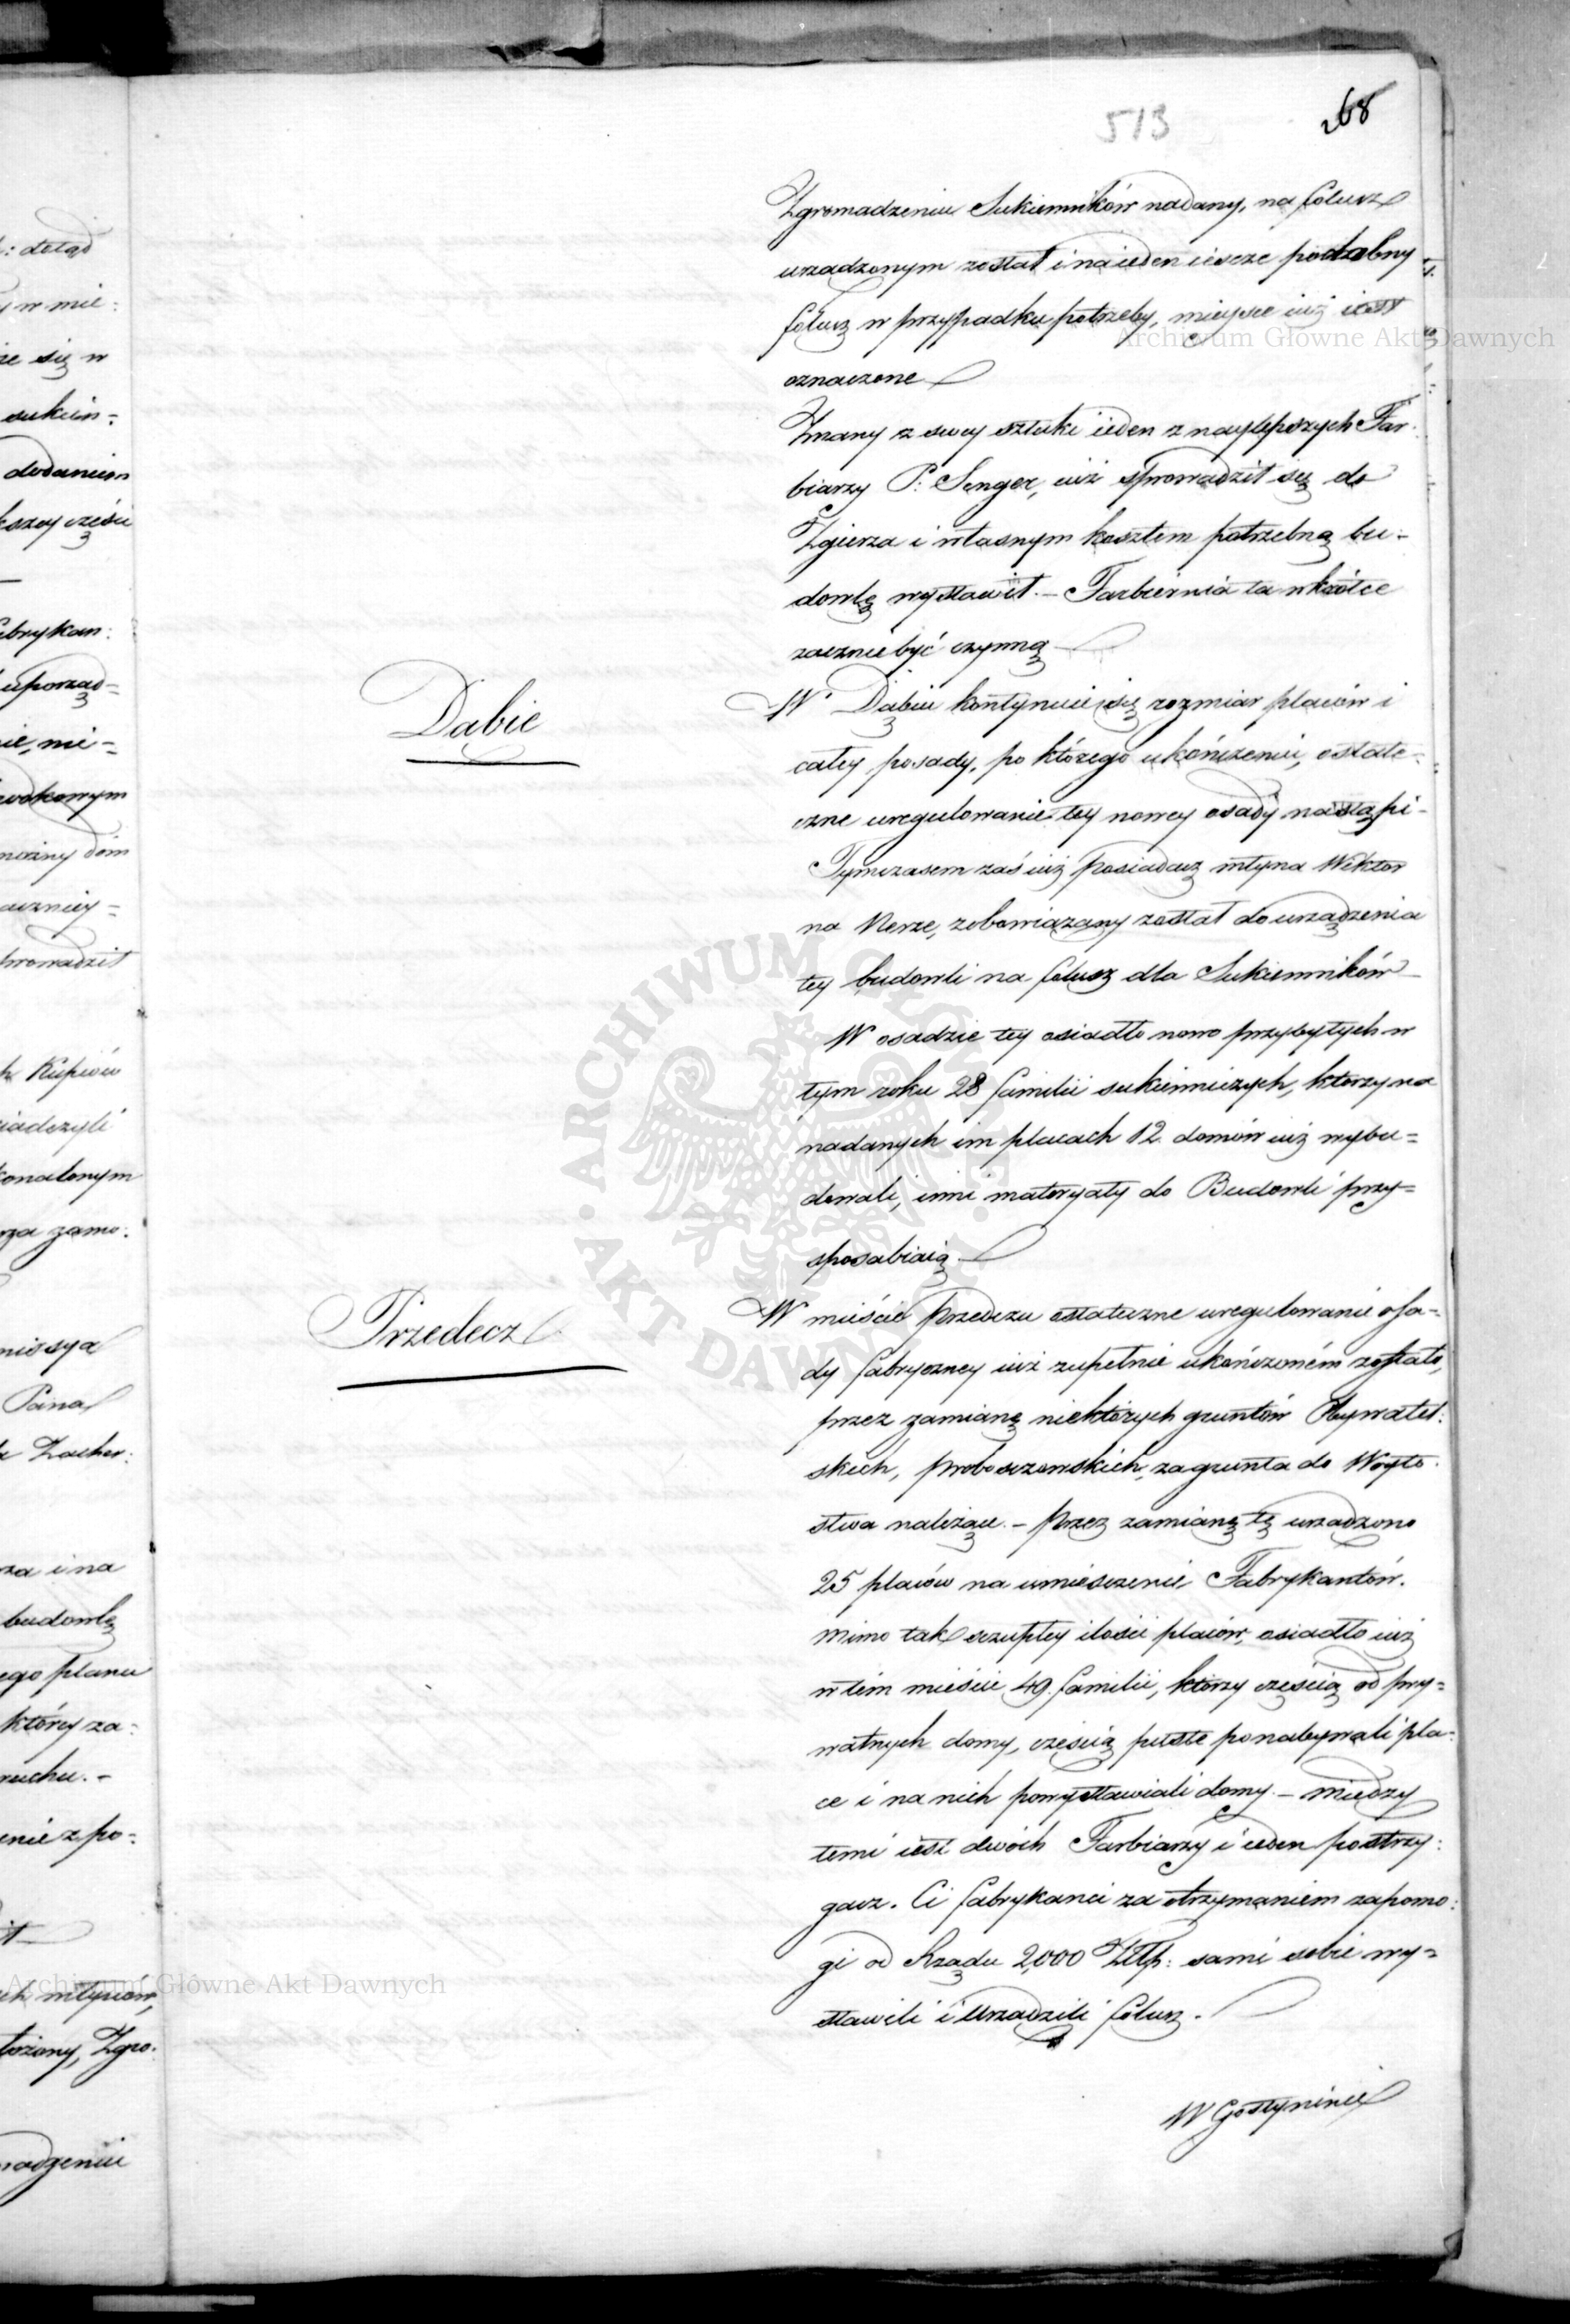 513
268
Zgromadzeniu Sukienników nadany, na folusz
urządzonym został i na ieden ieszcze podobny
folusz w przypadku potrzeby, mieysce iuż iest
oznaczone
Znany z swey sztuki ieden z naylepszych Far:
biarzy P: Senger, iuż sprowadził się do
Zgierza i własnym kosztem potrzebną bu:
dowlę wystawił. – Farbiernia ta wkrótce
zacznie być czynną
Dąbie
W Dąbiu kontynuie się rozmiar placów i
całey posady, po którego ukończeniu, ostate:
czne uregulowanie tey nowey osady nastąpi –
Tymczasem zaś iuż posiadacz młyna Wiktor
na Nerze, zobowiązany został do urządzenia
tey budowli na folusz dla Sukienników
W osadzie tey osiadło nowo przybyłych w
tym roku 28 familii sukienniczych, którzy na
nadanych im placach 12. domów iuż wybu=
dowali, inni materyały do Budowli przy=
sposabiaią
Przedecz
W mieście Przedczu ostateczne uregulowanie osa=
dy fabryczney iuż zupełnie ukończoném zostało,
przez zamianę niektórych gruntów Obywatel:
skich, proboszczowskich, za grunta do Woyto:
stwa należące. – Przez zamianę tę urządzono
25 placów na umieszczenie Fabrykantów.
Mimo tak szczupłey ilości placów, osiadło iuż
w tém mieście 49. familii, którzy częścią od pry=
watnych domy, częścią puste ponabywali pla:
ce i na nich powystawiali domy. – Między
temi iest dwóch Farbiarzy i ieden postrzy:
gacz. Ci fabrykanci za otrzymaniem zapomo:
gi od Rządu 2,000 Złtp: sami sobie wy=
stawili i urządzili folusz.
W Gostyninie
: dotąd
w mie:
że się w
sukien=
dodaniem
kszey części
uporząd=
nie, mi=
możny dóm
prowadził
Kupców
iadczyli
konalonym
za zamo:
missya
Pana
Zacher:
za i na
budowlę
ego planu
którey za:
ruchu. –
enie z po:
ch młynów,
łożony, Zgro:
madzeniu
Archiwum Główne Akt Dawnych
Archiwum Główne Akt Dawnych
ARCHIWUM GŁÓWNE · AKT DAWNYCH ·